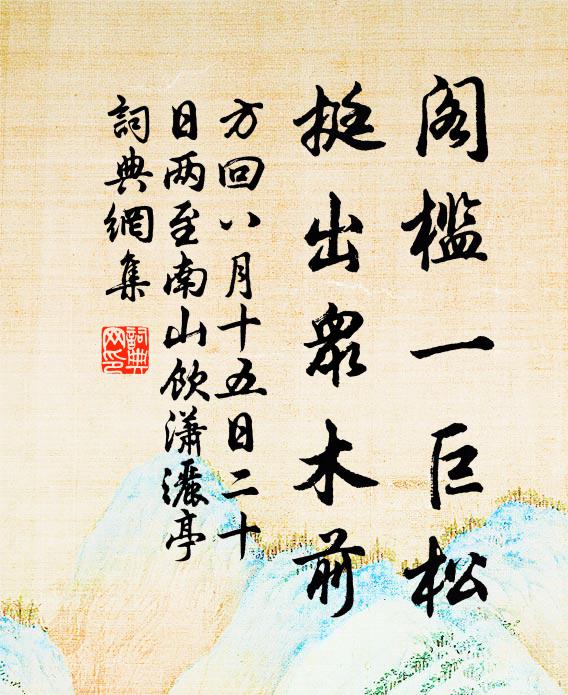 阁槛一巨松
挺出眾木前
方回八月十五日二十
日两至南山飲瀟灑亭
詞典網集
詞典網印